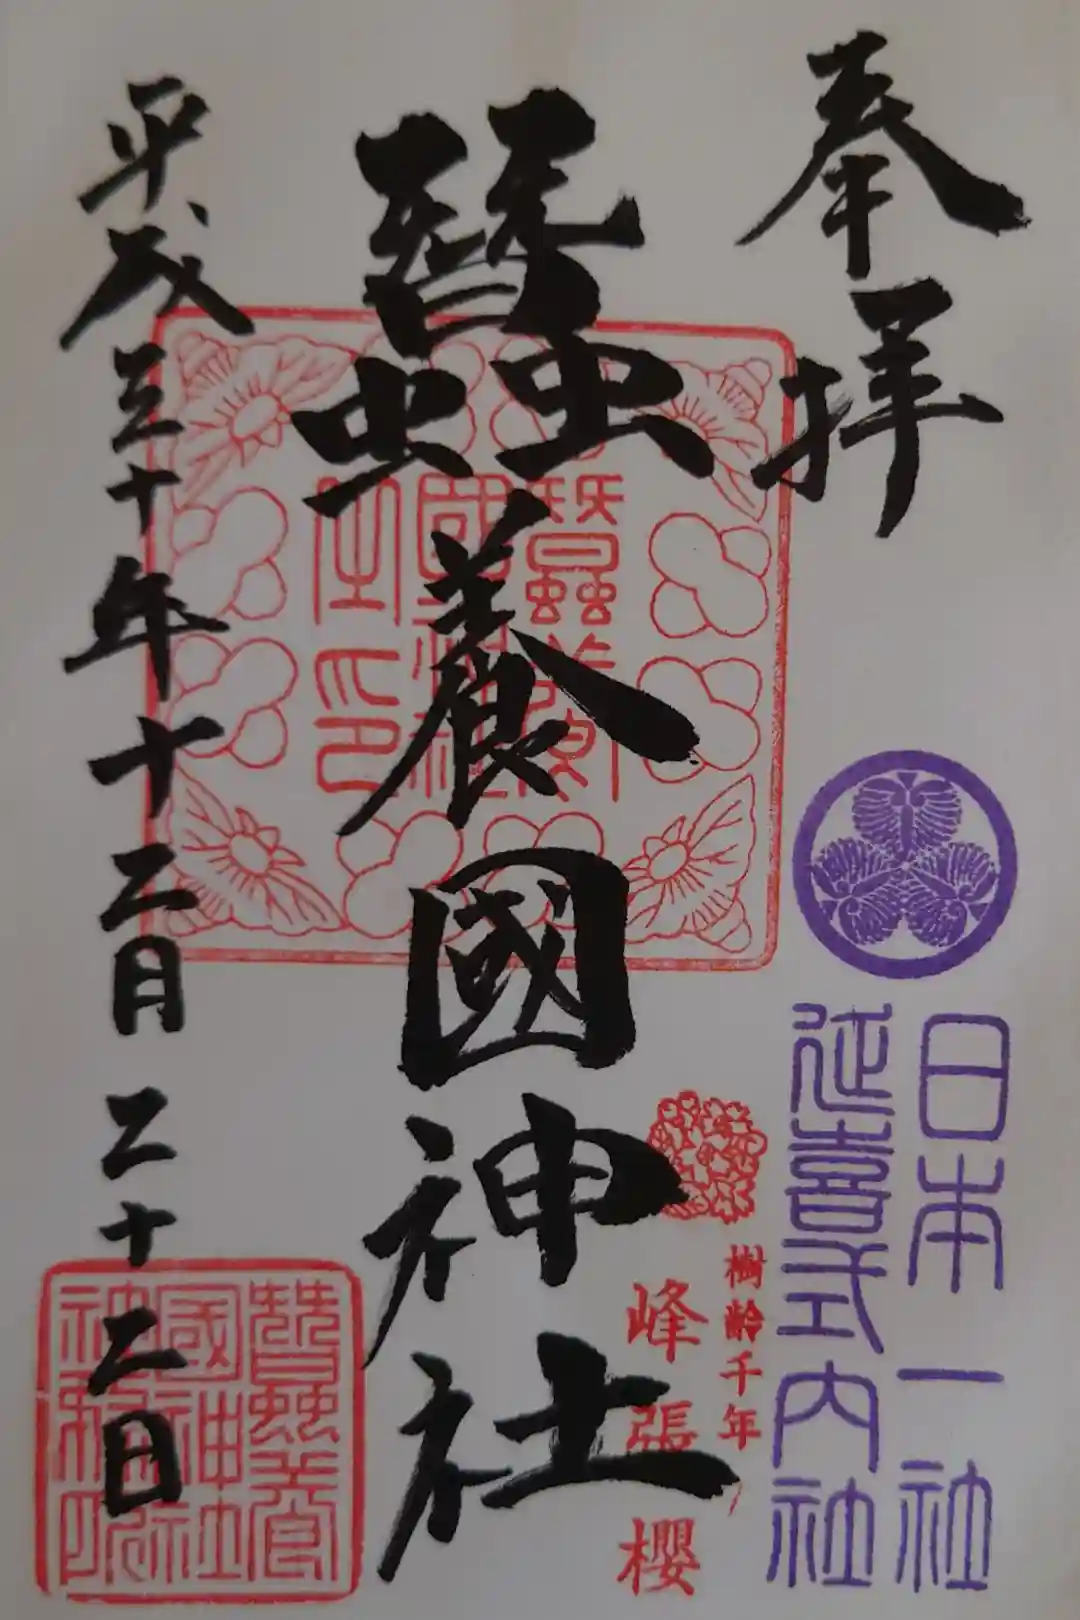 奉拝
日本一社
延喜式内社
樹齢千年
峰張櫻
蠶養國神社
蠶養國神社之印
平成三十年十二月二十二日
蠶養國神社神務所